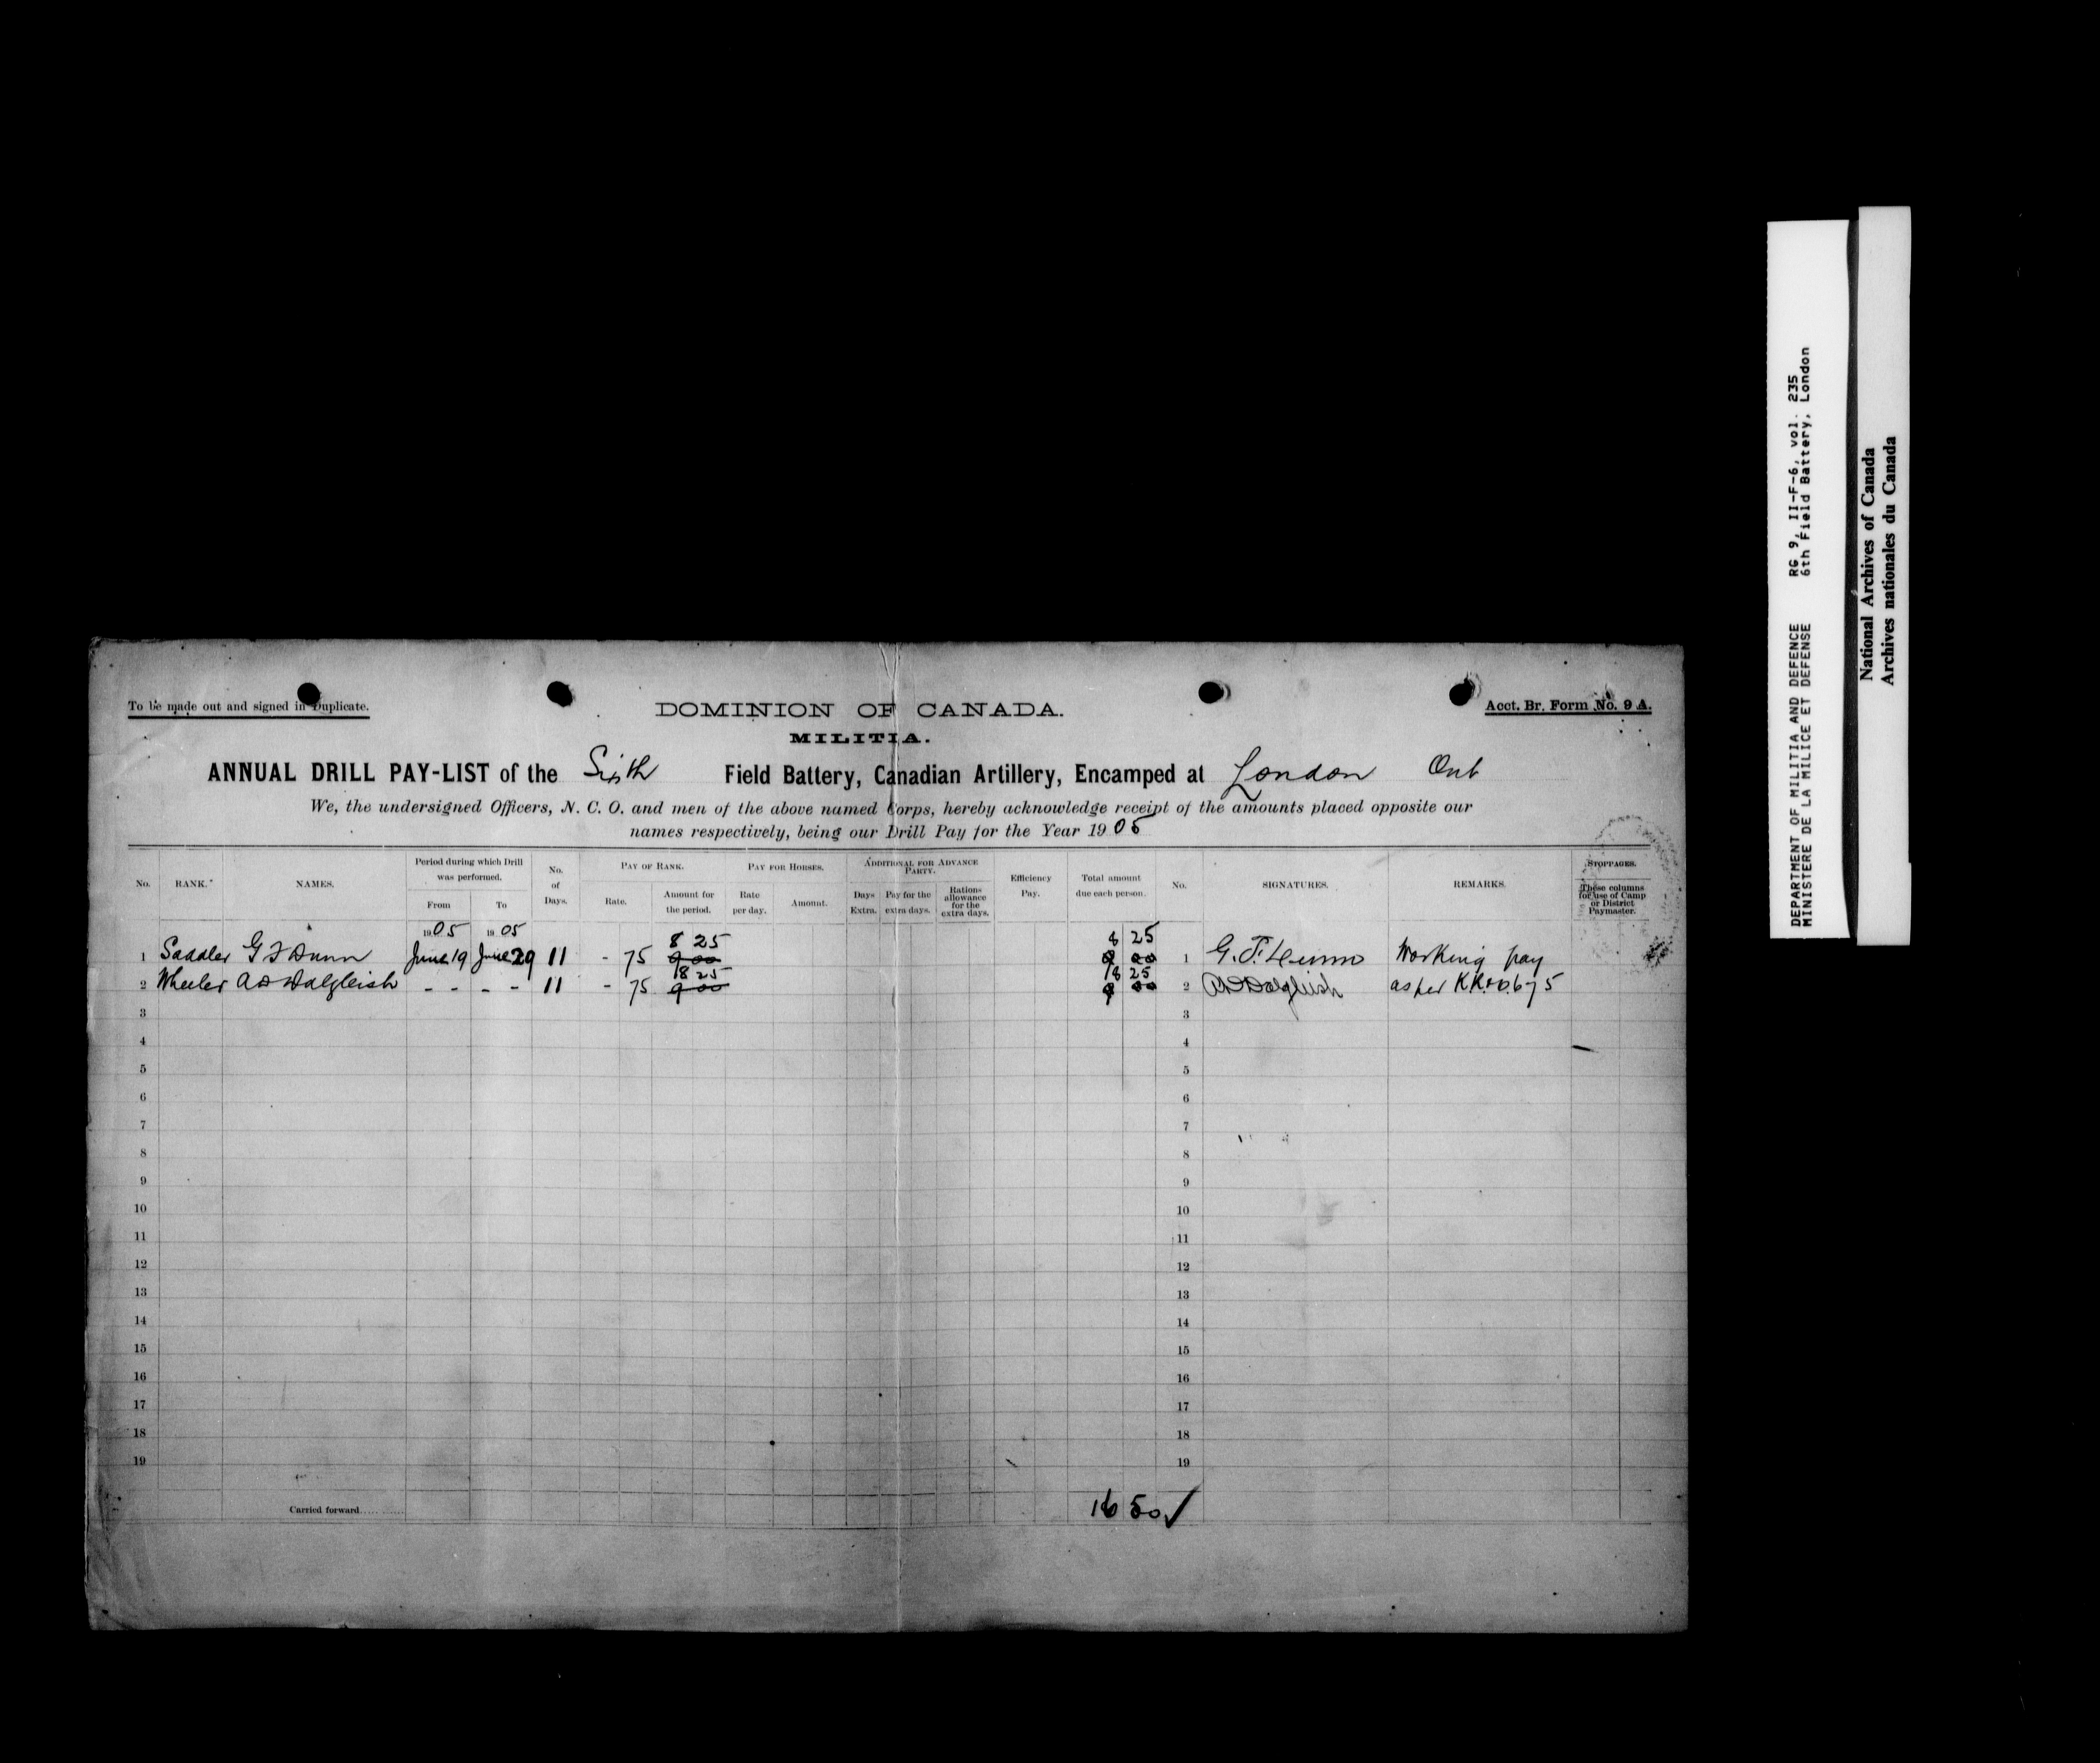 To be made out and signed in Duplicate.
Acct. Br. Form No. 9 A.
DOMINION OF CANADA.
MILITIA.
ANNUAL DRILL PAY-LIST of the Sixth Field Battery, Canadian Artillery, Encamped at London Ont
We, the undersigned Officers, N. C. O. and men of the above named Corps, hereby acknowledge receipt of the amounts placed opposite our
names respectively, being our Drill Pay for the Year 1905
No. RANK. NAMES. Period during which Drill was performed. From To No. of Days. PAY OF RANK. Rate. Amount for the period. PAY FOR HORSES. Rate per day. Amount. ADDITIONAL FOR ADVANCE PARTY. Days Extra. Pay for the extra days. Rations allowance for the extra days. Efficiency Pay. Total amount due each person. No. SIGNATURES. REMARKS. STOPPAGES. These columns for use of Camp or District Paymaster.
1905 1905
8 25 8 25
1 Saddler G F Dunn June 19 June 29 11 - 75 9 00 9 00 1 G. F. Dunn Working pay
8 25 8 25
2 Wheeler A D Dalgleish - - - - 11 - 75 9 00 9 00 2 A D Dalgleish as per K.R.&O. 675
3 3
4 4
5 5
6 6
7 7
8 8
9 9
10 10
11 11
12 12
13 13
14 14
15 15
16 16
17 17
18 18
19 19
Carried forward 16 50 ✓
DEPARTMENT OF MILITIA AND DEFENCE RG 9, II-F-6, vol. 235
MINISTERE DE LA MILICE ET DEFENSE 6th Field Battery, London
National Archives of Canada
Archives nationales du Canada